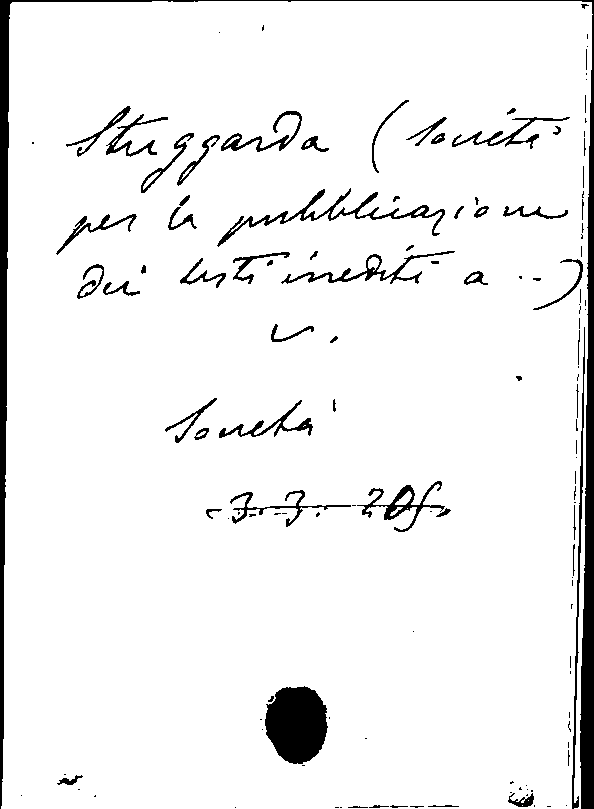 Stuggarda (Società
per la pubblicazione
dei testi inediti a ..)
v.
Società
3.3.